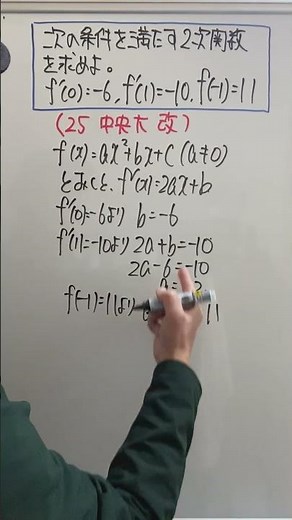 次の条件を満たす2次関数
を求めよ。
f'(0)=-6, f'(1)=-10, f(-1)=11
(25 中央大 改)
f(x)=ax²+bx+c (a≠0)
とおくと、f'(x)=2ax+b
f'(0)=-6より b=-6
f'(1)=-10より 2a+b=-10
2a-6=-10
f(-1)=11より
11